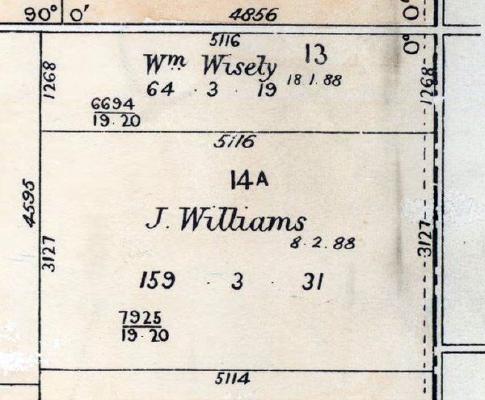 90° 0'
4856
0° 0'
5116
13
Wm Wisely
18.1.88
64 . 3 . 19
1268
1268
6694
19.20
5116
14A
4595
J. Williams
8.2.88
3127
3127
159 . 3 . 31
7925
19.20
5114